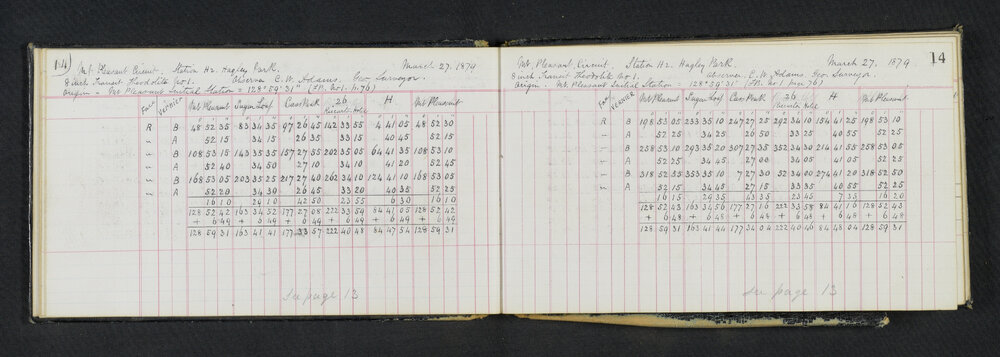 14) Mt Pleasant Circuit. Station H2. Hagley Park. March 27. 1879
8 inch Transit Theodolite No 1. Observer C. W. Adams. Geo. Surveyor.
Origin = Mt Pleasant Initial Station = 128° 59' 31"
Face Vernier Mt Pleasant Sugar Loaf Cass Peak 26 H Mt Pleasant
R B 48 52 35 83 34 35 97 26 45 142 33 55 4 41 05 48 52 30
" A 52 15 34 15 26 35 33 15 40 45 52 15
" B 108 53 15 143 35 35 157 27 55 202 35 05 64 41 35 108 53 10
" A 52 40 34 50 27 10 34 10 41 20 52 45
" B 168 53 05 203 35 25 217 27 40 262 34 10 124 41 10 168 53 05
" A 52 20 34 30 26 45 33 20 40 35 52 25
16 10 29 10 42 50 23 55 6 30 16 10
128 52 42 163 34 52 177 27 08 222 33 59 84 41 05 128 52 42
+ 6 49 + 6 49 + 6 49 + 6 49 + 6 49 + 6 49
128 59 31 163 41 41 177 33 57 222 40 48 84 47 54 128 59 31
see page 13
Mt. Pleasant Circuit. Station H2. Hagley Park. March 27. 1879 14
8 inch Transit Theodolite No 1. Observer C. W. Adams. Geo. Surveyor.
Origin = Mt Pleasant Initial Station 128° 59' 31"
Face Vernier Mt Pleasant Sugar Loaf Cass Peak 26 H Mt Pleasant
R B 198 53 05 233 35 10 247 27 25 292 34 10 154 41 25 198 53 10
" A 52 25 34 25 26 50 33 25 40 55 52 25
" B 258 53 10 293 35 20 307 27 35 352 34 30 214 41 55 258 53 05
" A 52 25 34 45 27 00 34 05 41 05 52 25
" B 318 52 55 353 35 10 7 27 30 52 34 00 274 41 20 318 52 50
" A 52 15 34 45 27 15 33 35 40 55 52 25
16 15 29 35 43 35 23 45 7 35 16 20
128 52 43 163 34 56 177 27 16 222 33 58 84 41 16 128 52 43
+ 6 48 + 6 48 + 6 48 + 6 48 + 6 48 + 6 48
128 59 31 163 41 44 177 34 04 222 40 46 84 48 04 128 59 31
see page 13